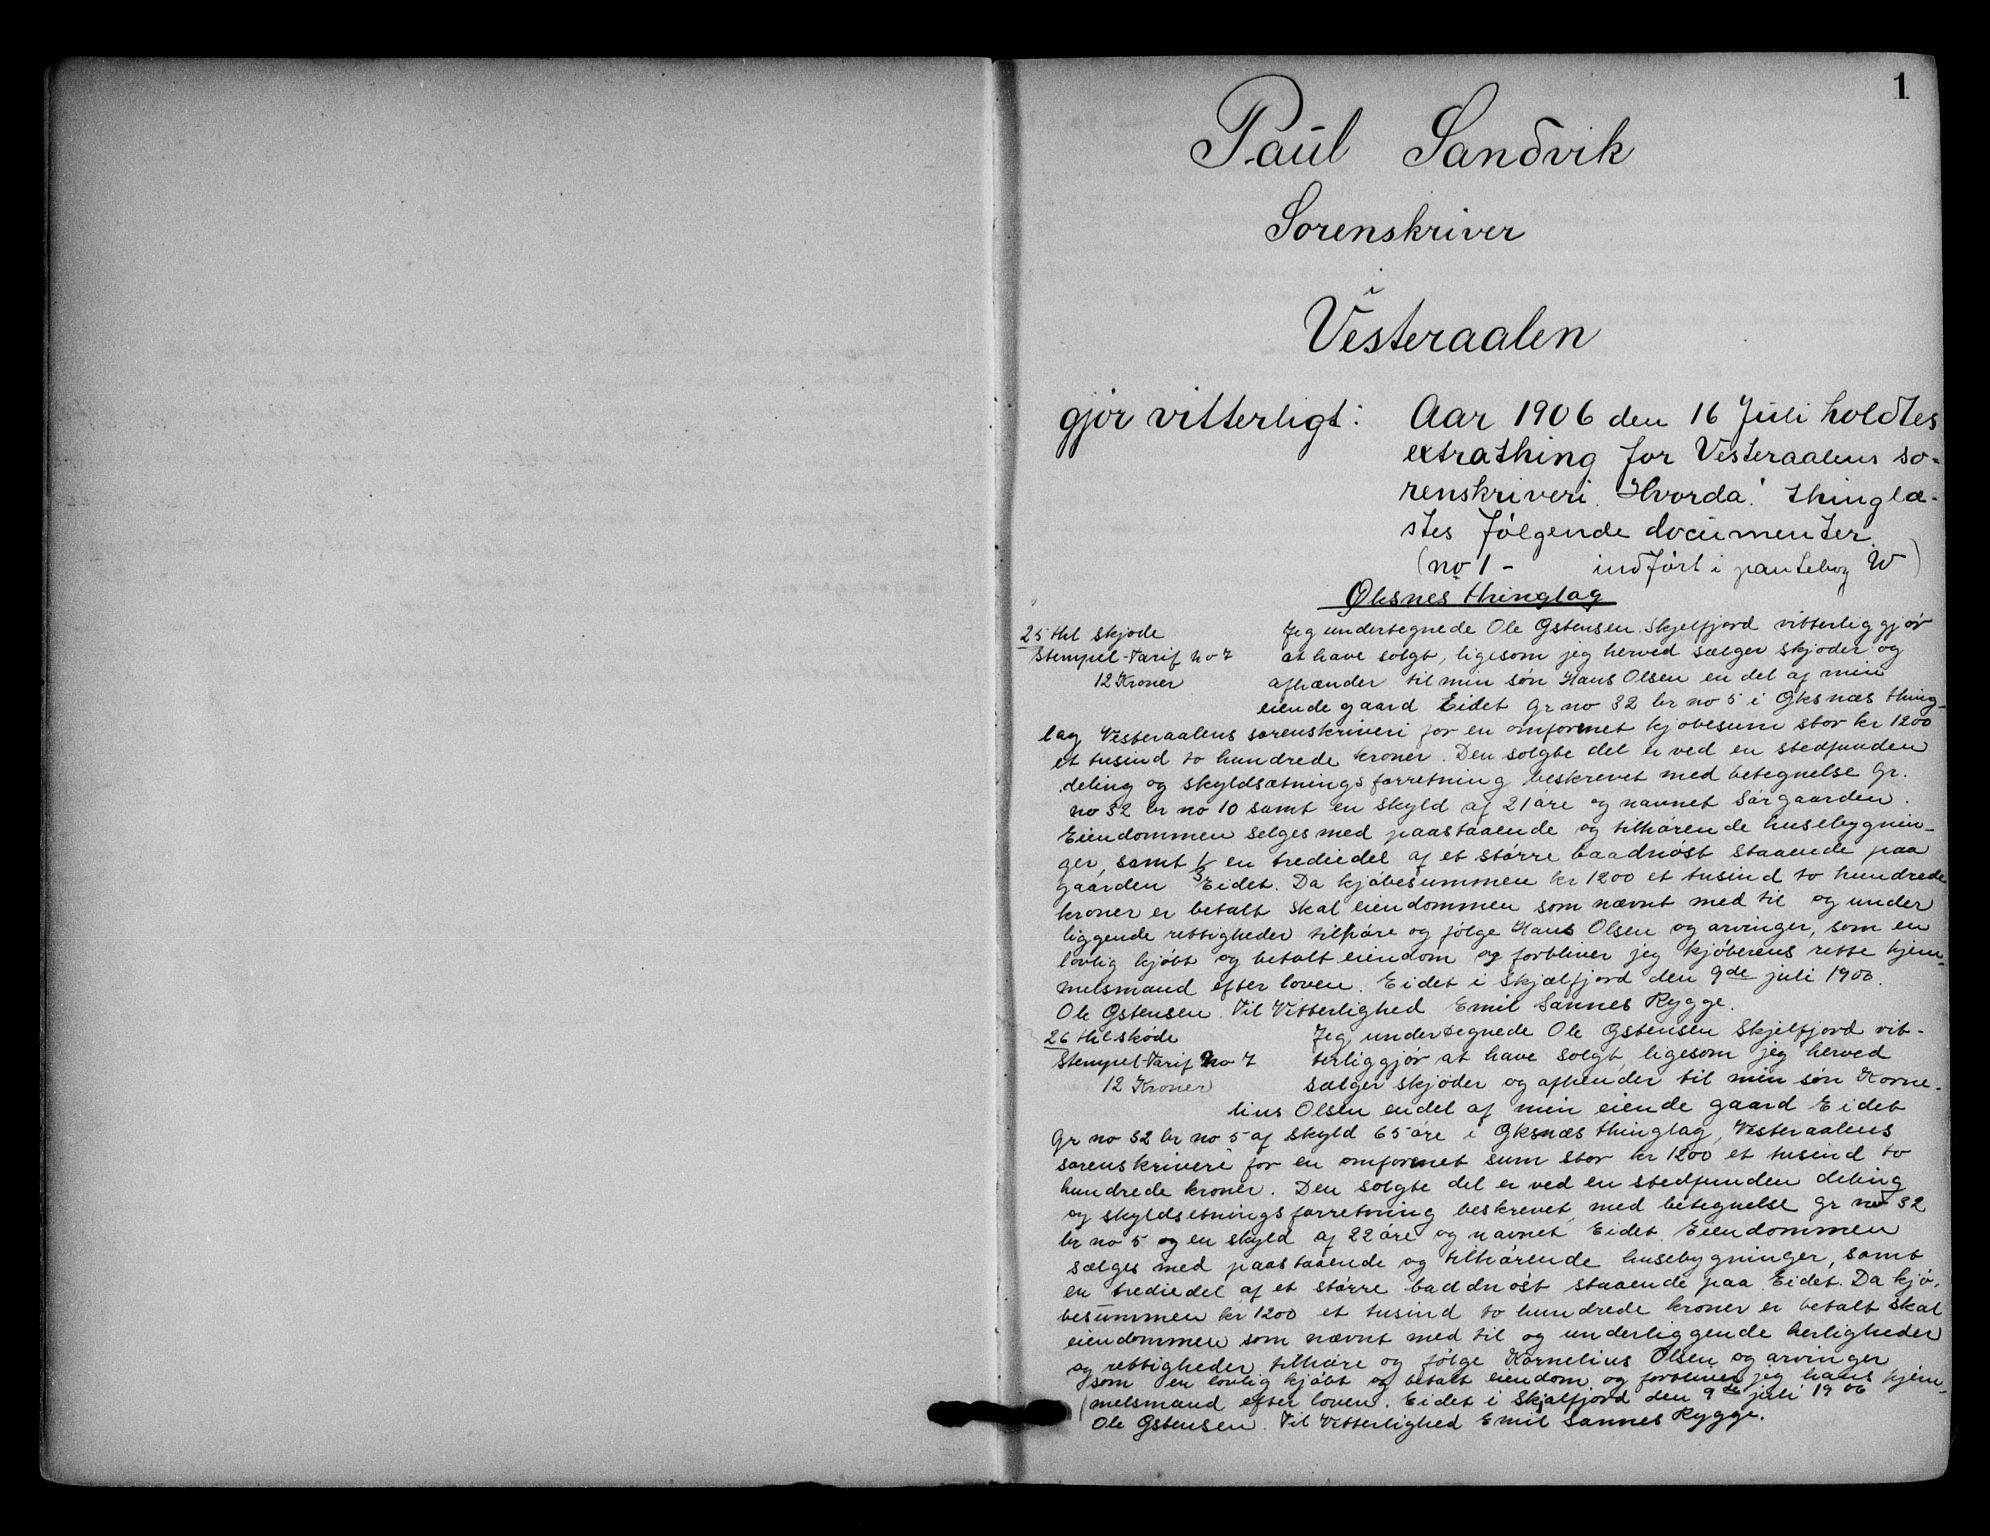 1
Paul Sandvik
Sorenskriver
i
Vesteraalen
gjør vitterligt: Aar 1906 den 16 Juli holdtes
extrathing for Vesteraalens so-
renskriveri. Hvorda! thinglæ-
stes følgende documenter.
(no 1 - indført i pantebog W)
Øksnes thinglag
25 thl skjøde
Stempel-Tarif no 7
12 Kroner
Jeg undertegnede Ole Østensen Skjelfjord vitterliggjør
at have solgt, ligesom jeg herved sælger skjøder og
afhænder til min søn Hans Olsen en del af min
eiende gaard Eidet Gr no 32 br no 5 i Øksnæs thing-
lag Vesteraalens sorenskriveri for en omforenet kjøbesum stor kr 1200
et tusind to hundrede kroner. Den solgte del er ved en stedfunden
deling og skyldsætningsforretning beskrevet med betegnelse Gr.
no 32 br no 10 samt en skyld af 21 øre og navnet Sørgaarden.
Eiendommen selges med paastaaende og tilhørende husebygnin-
ger, samt 1/3 en trediedel af et større baadnøst staaende paa
gaarden Eidet. Da kjøbesummen kr 1200 et tusind to hundrede
kroner er betalt skal eiendommen som nævnt med til og under
liggende rettigheder tilhøre og følge Hans Olsen og arvinger, som en
lovlig kjøbt og betalt eiendom og forbliver jeg kjøberens rette hjem-
melsmand efter loven. Eidet i Skjælfjord den 9de juli 1906.
Ole Østensen. Til Vitterlighed Emil Sannes Rygge.
26 thl skøde
Stempel-Tarif No 7
12 Kroner
Jeg undertegnede Ole Østensen Skjelfjord vit-
terliggjør at have solgt, ligesom jeg herved
sælger skjøder og afhender til min søn Korne-
lius Olsen endel af min eiende gaard Eidet
Gr no 32 br no 5 af skyld 65 øre i Øksnæs thinglag, Vesteraalens
sorenskriveri for en omforenet sum stor kr 1200 et tusind to
hundrede kroner. Den solgte del er ved en stedfunden deling
og skyldsetningsforretning beskrevet med betegnelse Gr no 32
br no 5 og en skyld af 22 øre og navnet Eidet. Eiendommen
sælges med paastaaende og tilhørende husebygninger, samt
en trediedel af et større baddnøst staaende paa Eidet. Da kjø-
besummen kr 1200 et tusind to hundrede kroner er betalt skal
eiendommen som nævnt med til og underliggende herligheder
og rettigheder tilhøre og følge Kornelius Olsen og arvinger
som en lovlig kjøbt og betalt eiendom og forbliver jeg hans hjem-
melsmand efter loven. Eidet i Skjælfjord den 9de juli 1906
Ole Østensen. Til Vitterlighed Emil Sannes Rygge.